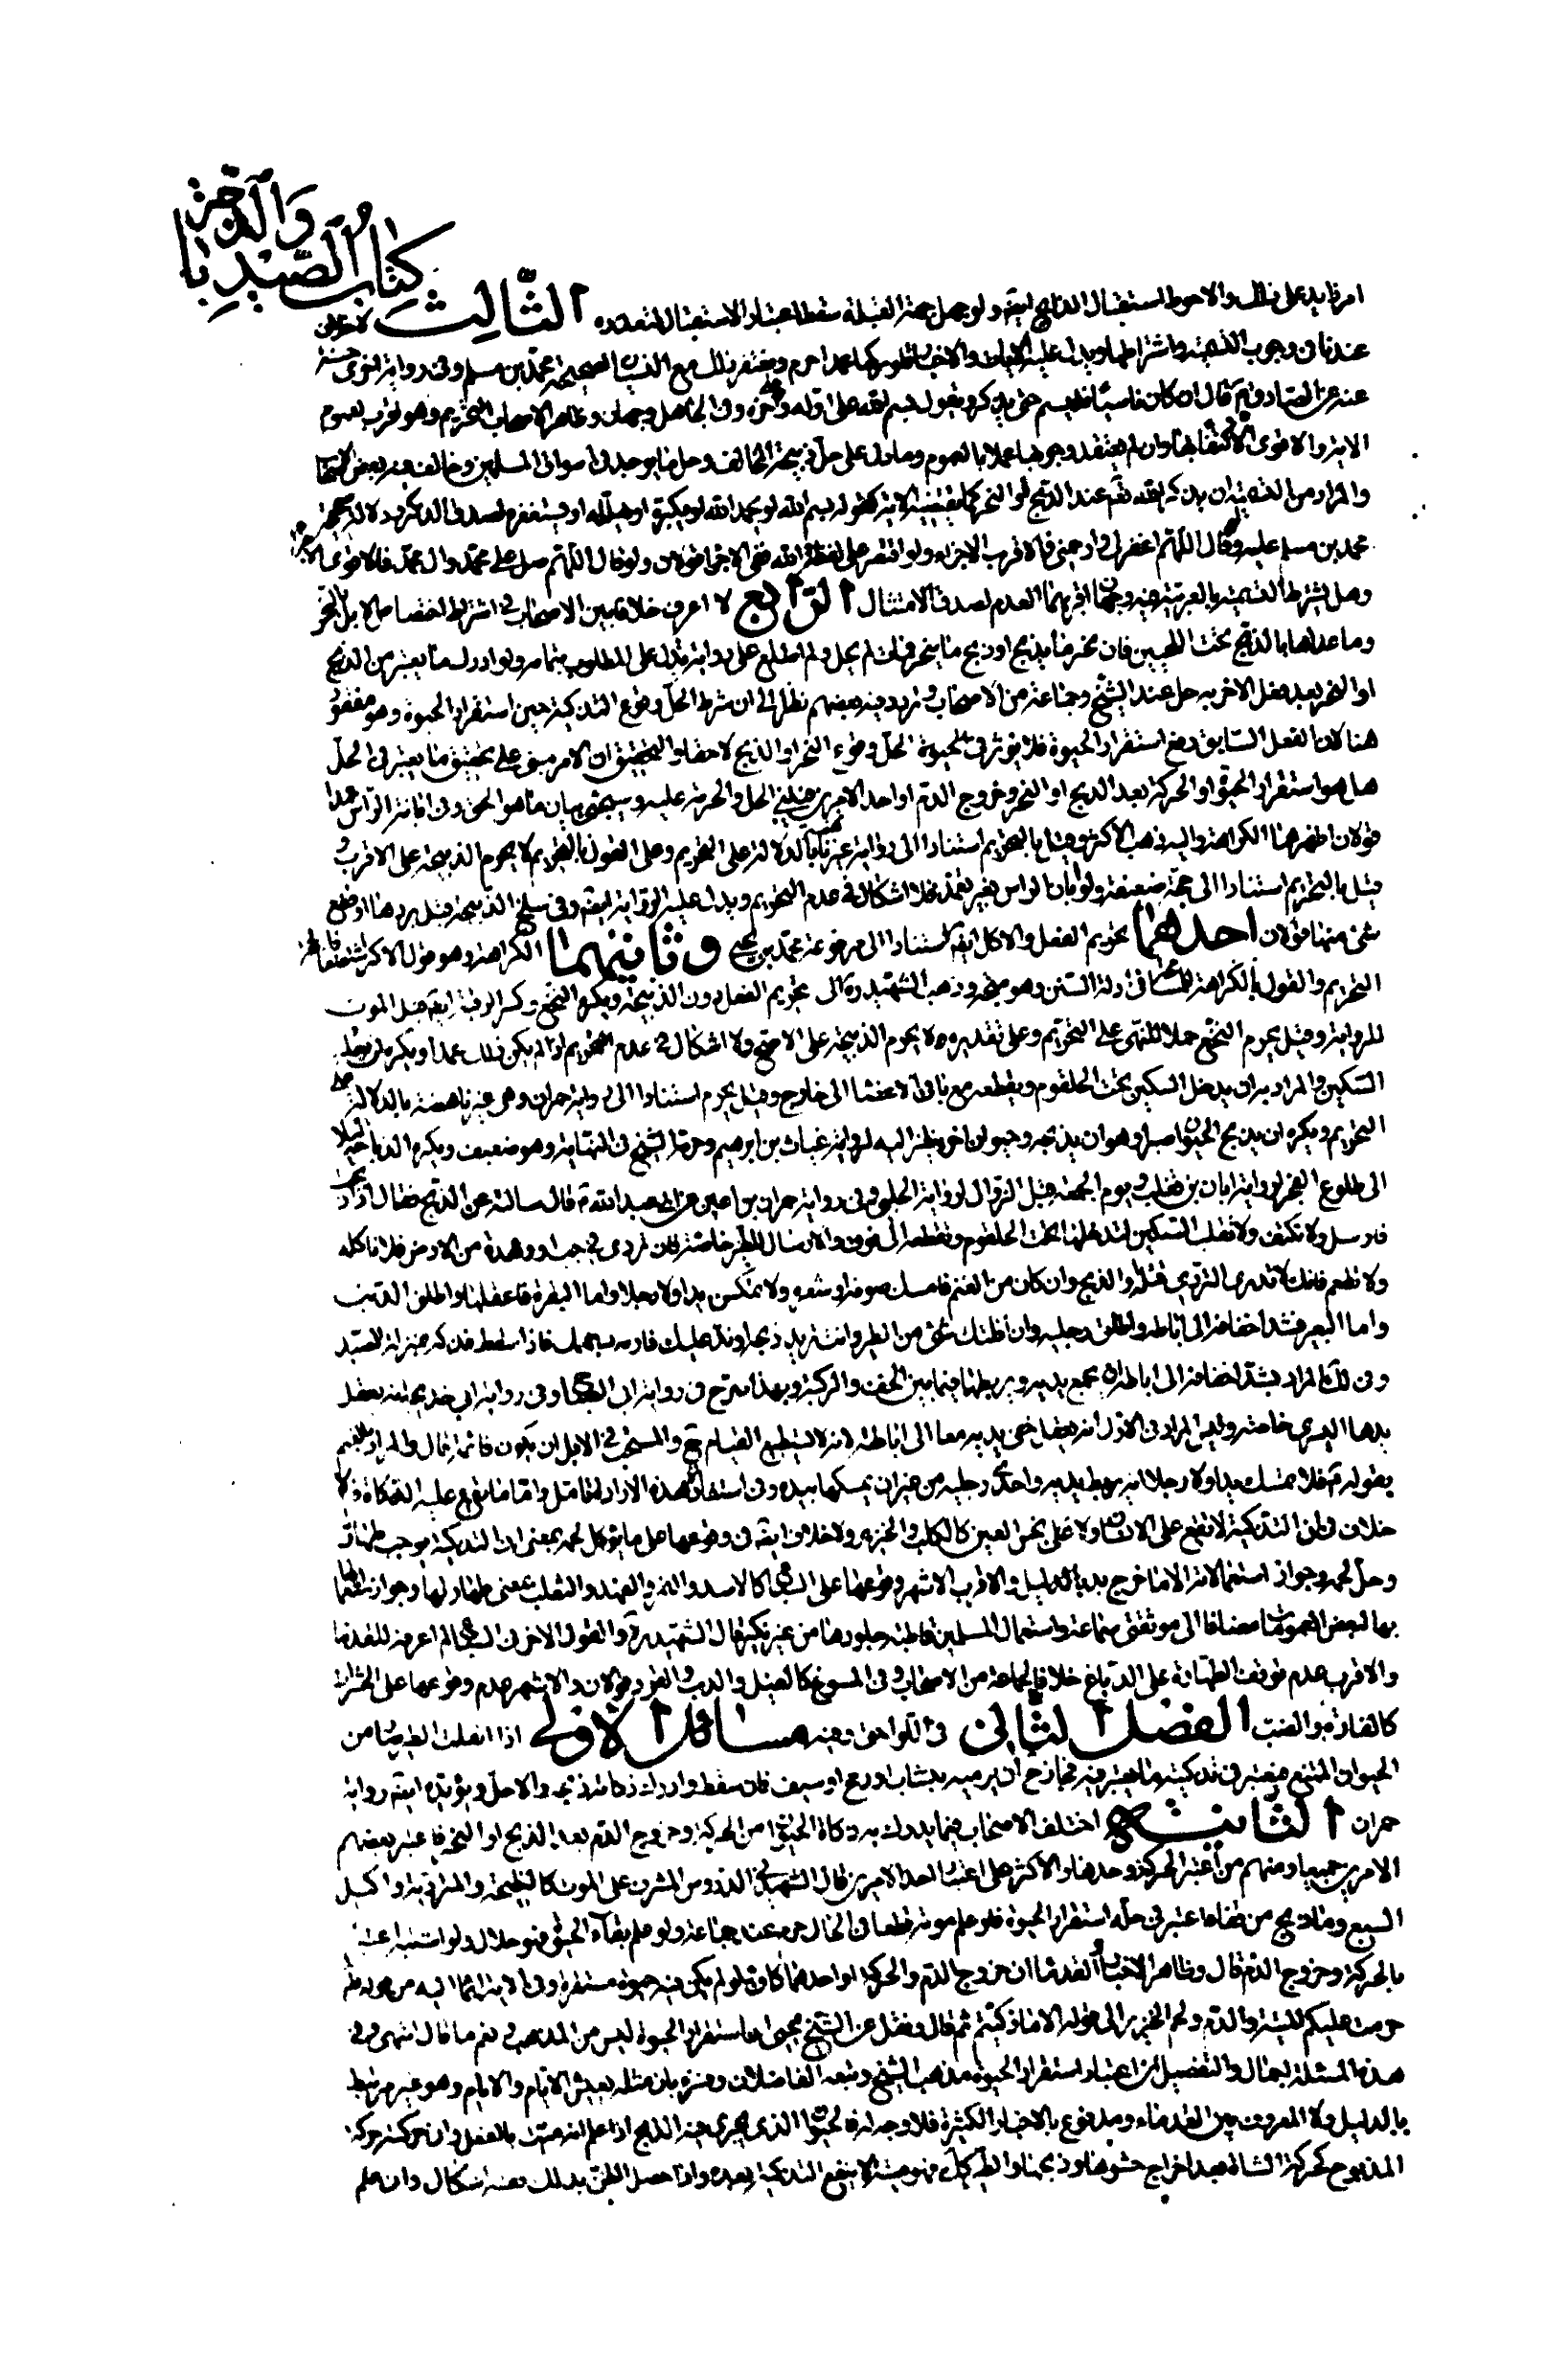 كتاب الصيد والذباحة
امر زايد على ذلك والاحوط استقبال الذابح ايضا ولو جهل جهة القبلة سقط اعتبار الاستقبال لتعذره الثالث لا خلاف
عندنا في وجوب التسمية واشتراطها ويدل عليه الآيات والاخبار فلو تركها عمدا حرم ويغتفر ذلك مع النسيان لصحيحة محمد بن مسلم وفي رواية اخرى حسنة
عنه عن الصادق قال ان كان ناسيا فليسم حين يذكر ويقول بسم الله على اوله وآخره وفي الجاهل وجهان وظاهر الاصحاب التحريم وهو قريب لعموم
الاية والاقوى الاكتفاء بها وان لم يعتقد وجوبها عملا بالعموم وما دل على حل ذبيحة المخالف وحل ما يوجد في اسواق المسلمين وخالف فيه بعض
والمراد من التسمية ان يذكر الله تعالى عند الذبح او النحر كما يقتضيه الاية كقوله بسم الله او يحمد الله او يكبره او يهلله او يستغفره لصدق الذكر ودلالة صحيحة
محمد بن مسلم عليه ولو قال اللهم اغفر لي وارحمني فالاقرب الاجزاء ولو اقتصر على لفظ الله ففي الاجزاء قولان ولو قال اللهم صل على محمد وال محمد فالاقوى الاجزاء
وهل يشترط التسمية بالعربية فيه وجهان اقربهما العدم لصدق الامتثال الرابع لا اعرف خلافا بين الاصحاب في اشتراط اختصاص الابل بالنحر
وما عداها بالذبح تحت اللحيين فان نحر ما يذبح او ذبح ما ينحر فمات لم يحل ولم اطلع على رواية تدل على المطلوب فيما مر ولو ادرك ما يعتبر من الذبح
او النحر بعد فعل الاخر به حل عند الشيخ وجماعة من الاصحاب وتردد فيه بعضهم نظرا الى ان شرط الحل وقوع التذكية حين استقرار الحيوة وهو مفقود
هنا لان الفعل السابق رفع استقرار الحيوة فلا يؤثر في الحل وقوع النحر او الذبح لاحقا والتحقيق ان الامر مبني على تحقيق ما يعتبر في الحل
هل هو استقرار الحيوة او الحركة بعد الذبح او النحر وخروج الدم او احد الامرين فيبني الحل والحرمة عليه وسيجيء بيان ما هو الحق وفي ابانة الراس عمدا
قولان اظهرهما الكراهة واليه ذهب الاكثر وقيل بالتحريم استنادا الى رواية غير بالدلالة على التحريم وعلى القول بالتحريم لا يحرم الذبيحة على الاقرب و
قيل بالتحريم استنادا الى حجة ضعيفة ولو ابان الراس بغير تعمد فلا اشكال في عدم التحريم ويدل عليه الرواية ايضا وفي سلخ الذبيحة قبل بردها او قطع
شيء منها قولان احدهما تحريم الفعل والاكل ايضا استنادا الى مرفوعة محمد بن يحيى وثانيهما الكراهة وهو قول الاكثر
التحريم والقول بالكراهة للمسامحة في ادلة السنن وهو متجه وذهب الشهيد ره الى تحريم الفعل دون الذبيحة ويكره النخع وكسر الرقبة قبل الموت
للرواية وقيل يحرم النخع حملا للنهي على التحريم وعلى تقديره لا يحرم الذبيحة على الاصح ولا اشكال في عدم التحريم اذا لم يكن ذلك عمدا ويكره ان يقلب
السكين والمراد به ان يدخل السكين تحت الحلقوم ويقطعه مع باقي الاعضاء الى خارج وقيل يحرم استنادا الى رواية حمران وهي غير ناهضة بالدلالة على
التحريم ويكره ان يذبح الحيوان صبرا وهو ان يذبحه وحيوان اخر ينظر اليه لرواية غياث بن ابرهيم وحرمه الشيخ في النهاية وهو ضعيف ويكره الذباحة ليلا
الى طلوع الفجر لرواية ابان بن تغلب ويوم الجمعة قبل الزوال لرواية الحلبي وفي رواية حمران بن اعين عن ابي عبد الله قال سالته عن الذبح فقال اذا ذبحت
فارسل ولا تكتف ولا تقلب السكين لتدخلها تحت الحلقوم وتقطعه الى فوق والارسال للطير خاصة فان تردى في جب او وهدة من الارض فلا تاكله
ولا تطعم فانك لا تدري التردي قتله او الذبح وان كان من الغنم فامسك صوفه او شعره ولا تمسكن يدا ولا رجلا واما البقرة فاعقلها واطلق الذنب
واما البعير فشد اخفافه الى اباطه واطلق رجليه وان افلتك شيء من الطير وانت تريد ذبحه او ند عليك فارمه بسهمك فاذا سقط فذكه بمنزلة الصيد
وفي لك المراد بشد اخفافه الى اباطه ان يجمع يديه ويربطهما فيما بين الخف والركبة وبهذا صرح في رواية ابي الصباح وفي رواية ابي خديجة انه يعقل
يدها اليسرى خاصة وليس المراد في الاول انه يعقل خفي يديه معا الى اباطه لانه لا يستطيع القيام والمستحب في الابل ان يكون قائمة قال والمراد في الغنم
بقوله فلا تمسك يدا ولا رجلا انه يربط يديه واحدى رجليه من غير ان يمسكها بيده وفي استفادة هذه الارادة تامل واما ما يقع عليه الذكاة فلا
خلاف في ان التذكية لا تقع على الانسان ولا على نجس العين كالكلب والخنزير ولا خلاف ايضا في وقوعها على ما يؤكل لحمه بمعنى ان التذكية يوجب طهارته
وحل لحمه وجواز استعمالاته الا ما خرج بدليل والاقرب الاشهر وقوعها على السباع كالاسد والنمر والفهد والثعلب بمعنى طهارتها وجواز استعمالها
بها لبعض العمومات مضافا الى موثقتي سماعة واستعمال المسلمين قاطبة جلودها من غير نكير قال الشهيد ره والقول الاخر في السباع لا اعرفه للقدماء
والاقرب عدم توقف الطهارة على الدباغ خلافا لجماعة من الاصحاب وفي المسوخ كالفيل والدب والقرد قولان والاشهر عدم وقوعها على الحشرات
كالفارة والضب الفصل الثاني في اللواحق وفيه مسائل الاولى اذا انفلت الطير من
الحيوان الممتنع فيعتبر في تذكيته ما يعتبر فيه فجاز ان يرميه بنشاب او رمح او سيف فان سقط وادرك ذكاته ذبحه والا حل ويؤيده ايضا رواية
حمران الثانية اختلف الاصحاب فيما يدرك به ذكاة الحيوان من الحركة وخروج الدم بعد الذبح او النحر فاعتبر بعضهم
الامرين جميعا ومنهم من اعتبر الحركة وحدها والاكثر على اعتبار احد الامرين قال الشهيد في الدروس المشرف على الموت كالنطيحة والمتردية واكيل
السبع وما ذبح من قفاه اعتبر في حله استقرار الحيوة فلو علم موته قطعا في الحال حرم عند جماعة ولو علم بقاء الحيوة فهو حلال ولو اشتبه اعتبر
بالحركة وخروج الدم قال وظاهر الاخبار والقدماء ان خروج الدم والحركة او احدهما كاف ولو لم يكن فيه حيوة مستقرة وفي الاية ايماء اليه من قوله
حرمت عليكم الميتة والدم ولحم الخنزير الى قوله الا ما ذكيتم ثم قال ونقل عن الشيخ يحيى ان استقرار الحيوة ليس من المذهب ونعم ما قال انتهى وفي
هذه المسئلة مقال والتفصيل ان اعتبار استقرار الحيوة مذهب الشيخ وتبعه الفاضلان وفسره بان مثله يعيش الايام والايام وهو غير مرتبط
بالدليل ولا المعروف بين القدماء ومدفوع بالاخبار الكثيرة فلا وجه له فالحيوان الذي يجري فيه الذبح اذا علم انه ميت بالفعل وان حركته حركة
المذبوح كحركة الشاة بعد اخراج حشوها وذبحها والطير كك فهو ميتة لا ينفع التذكية بعده واذا حصل الظن بذلك ففيه اشكال وان علم